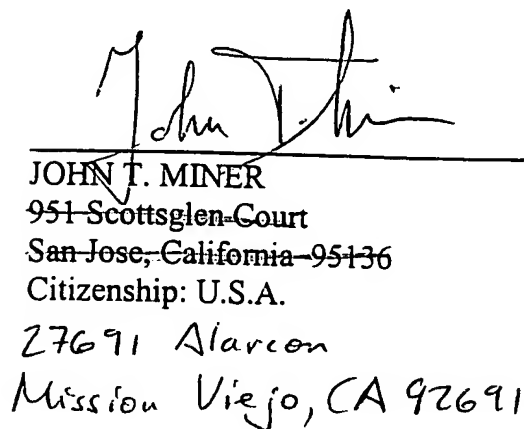 John T. Miner
JOHN T. MINER
951 Scottsglen Court
San Jose, California 95136
Citizenship: U.S.A.
27691 Alarcon
Mission Viejo, CA 92691